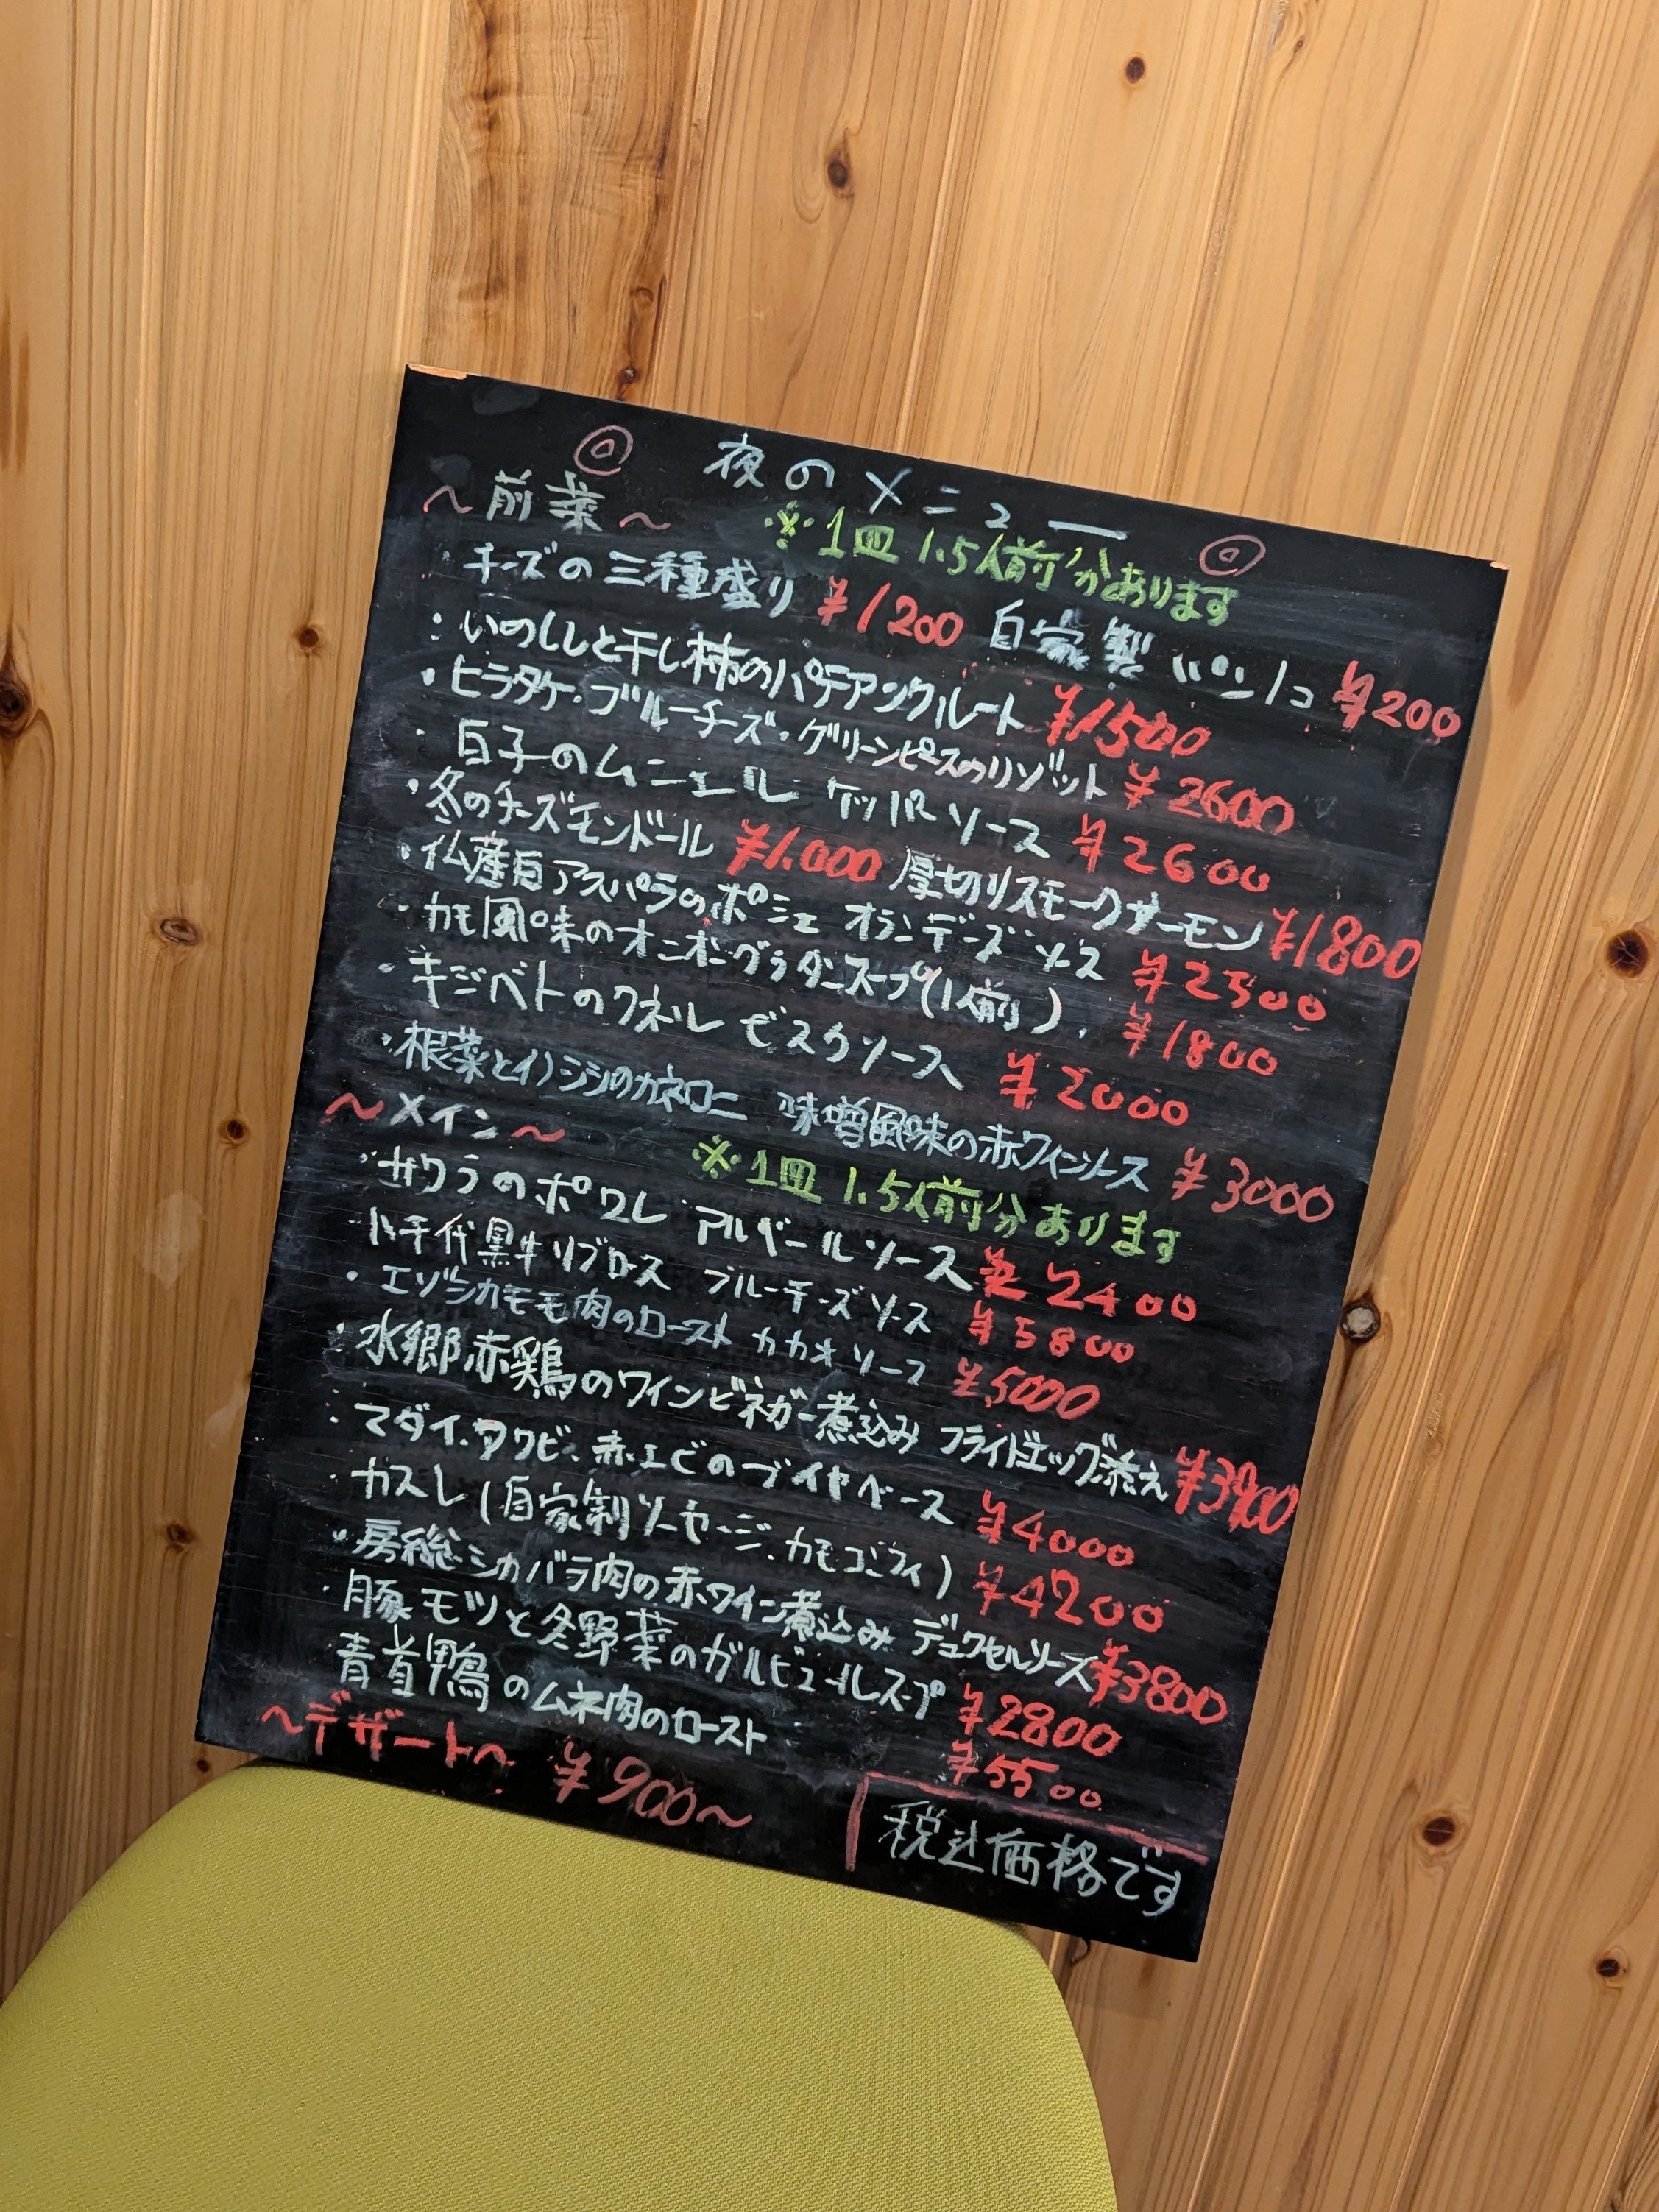 ◎ 夜のメニュー ◎
〜前菜〜 ※1皿1.5人前分あります
・チーズの三種盛り ¥1200 自家製パン1コ ¥200
・いのししと干し柿のパテアンクルート ¥1500
・ヒラタケ・ブルーチーズ・グリーンピースのリゾット ¥2600
・白子のムニエル ケッパーソース ¥2600
・冬のチーズモンドール ¥1.000 厚切りスモークサーモン ¥1800
・仏産白アスパラのポシェ オランデーズソース ¥2500
・カモ風味のオニオングラタンスープ(1人前) ¥1800
・キジベトのクネル ビスクソース ¥2000
・根菜とイノシシのカネロニ 味噌風味の赤ワインソース ¥3000
〜メイン〜 ※1皿1.5人前分あります
・サワラのポワレ アルベールソース ¥2400
八千代黒牛リブロース ブルーチーズソース ¥5800
・エゾシカモモ肉のロースト カカオソース ¥5000
・水郷赤鶏のワインビネガー煮込み フライドエッグ添え
・マダイ、アワビ、赤エビのブイヤベース ¥4000
・カスレ(自家製ソーセージ、カモコンフィ) ¥4200
・房総シカバラ肉の赤ワイン煮込み デュクセルソース ¥3800
・豚モツと冬野菜のガルビュールスープ ¥2800
青首鴨のムネ肉のロースト ¥5500
〜デザート〜 ¥900〜
税込価格です